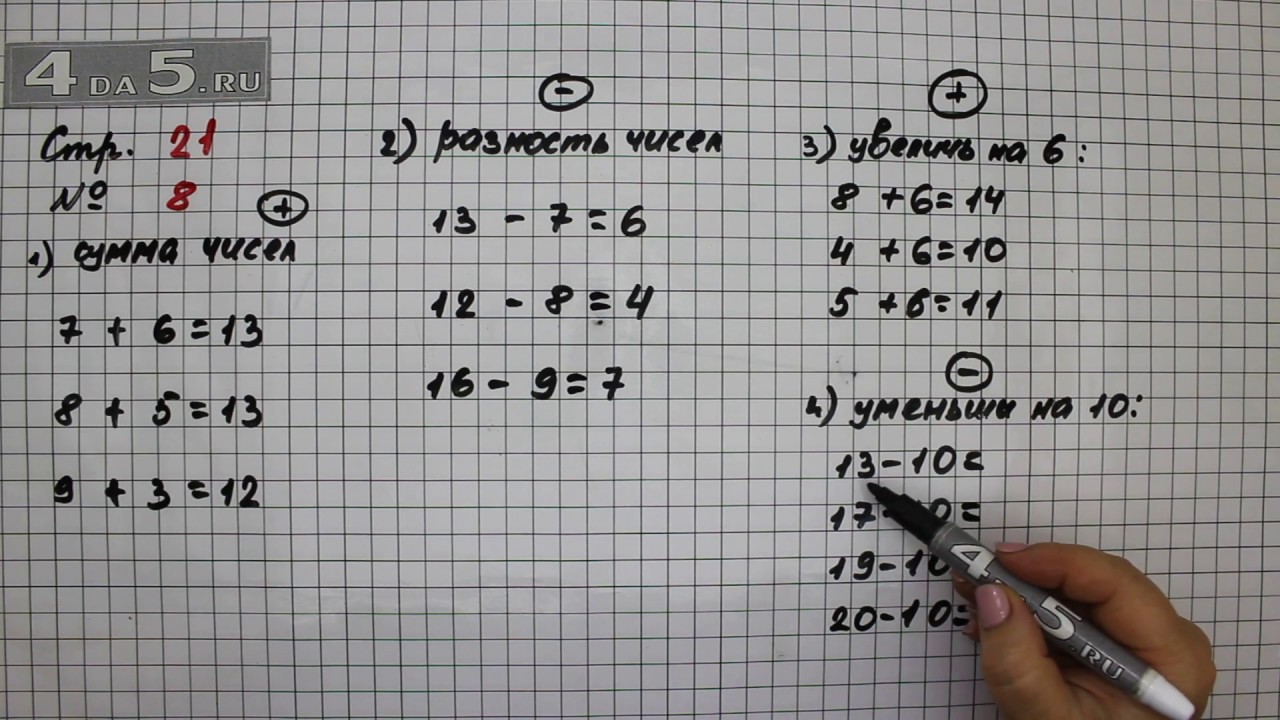 4DA5.RU
Стр. 21
№ 8
+
1) сумма чисел
7 + 6 = 13
8 + 5 = 13
9 + 3 = 12
-
2) разность чисел
13 - 7 = 6
12 - 8 = 4
16 - 9 = 7
+
3) увеличь на 6:
8 + 6 = 14
4 + 6 = 10
5 + 6 = 11
-
4) уменьши на 10:
13 - 10 =
17 - 10 =
19 - 10
20 - 10 =
4 5.RU